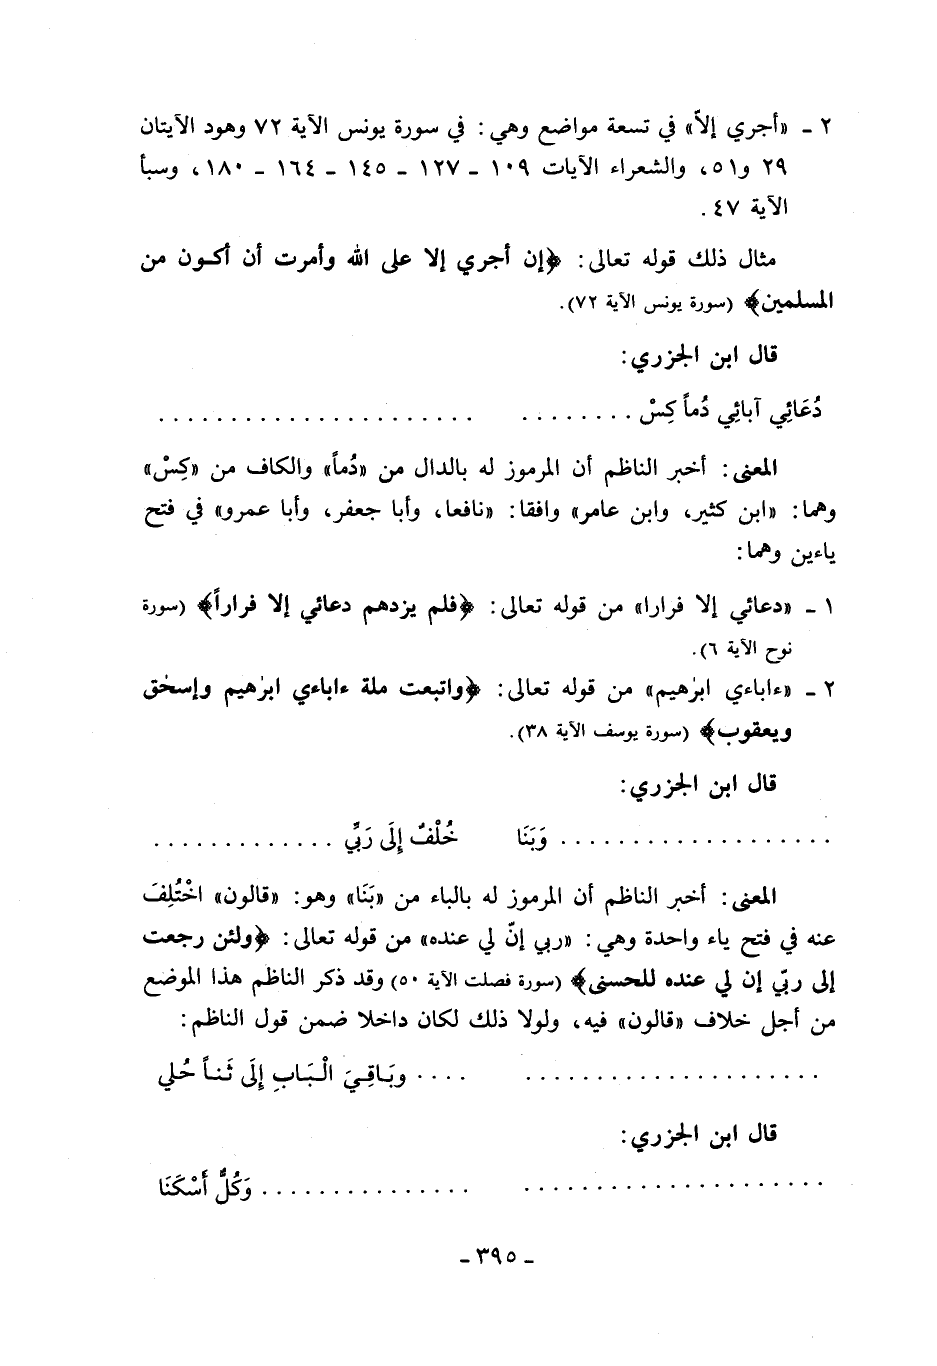 ٢ ـ «أجري إلاّ» في تسعة مواضع وهي: في سورة يونس الآية ٧٢ وهود الآيتان
٢٩ و٥١، والشعراء الآيات ١٠٩ ـ ١٢٧ ـ ١٤٥ ـ ١٦٤ ـ ١٨٠، وسبأ
الآية ٤٧.
مثال ذلك قوله تعالى: ﴿إن أجري إلا على الله وأمرت أن أكون من
المسلمين﴾ (سورة يونس الآية ٧٢).
قال ابن الجزري:
دُعَائِي آبائِي دُماً كِسْ . . . . . . . . . . . . . . . . . . . . . . . . . . . . . .
المعنى: أخبر الناظم أن المرموز له بالدال من «دُماً» والكاف من «كِسْ»
وهما: «ابن كثير، وابن عامر» وافقا: «نافعا، وأبا جعفر، وأبا عمرو» في فتح
ياءين وهما:
١ ـ «دعائي إلا فرارا» من قوله تعالى: ﴿فلم يزدهم دعائي إلا فراراً﴾ (سورة
نوح الآية ٦).
٢ ـ «ءاباءي ابرٰهيم» من قوله تعالى: ﴿واتبعت ملة ءاباءي ابرٰهيم وإسحٰق
ويعقوب﴾ (سورة يوسف الآية ٣٨).
قال ابن الجزري:
. . . . . . . . . . . . . . . . . . . وَبَنَا خُلْفٌ إِلَى رَبِّي . . . . . . . . . . . . .
المعنى: أخبر الناظم أن المرموز له بالباء من «بَنَا» وهو: «قالون» اخْتُلِفَ
عنه في فتح ياء واحدة وهي: «ربي إنّ لي عنده» من قوله تعالى: ﴿ولئن رجعت
إلى ربّي إن لي عنده للحسنى﴾ (سورة فصلت الآية ٥٠) وقد ذكر الناظم هذا الموضع
من أجل خلاف «قالون» فيه، ولولا ذلك لكان داخلا ضمن قول الناظم:
. . . . . . . . . . . . . . . . . . . . . . . . . وبَاقِيَ الْبَابِ إِلَى ثَناً حُلي
قال ابن الجزري:
. . . . . . . . . . . . . . . . . . . . . . . . . . . . . . . . . . . . وَكُلٌّ أَسْكَنَا
ـ ٣٩٥ ـ